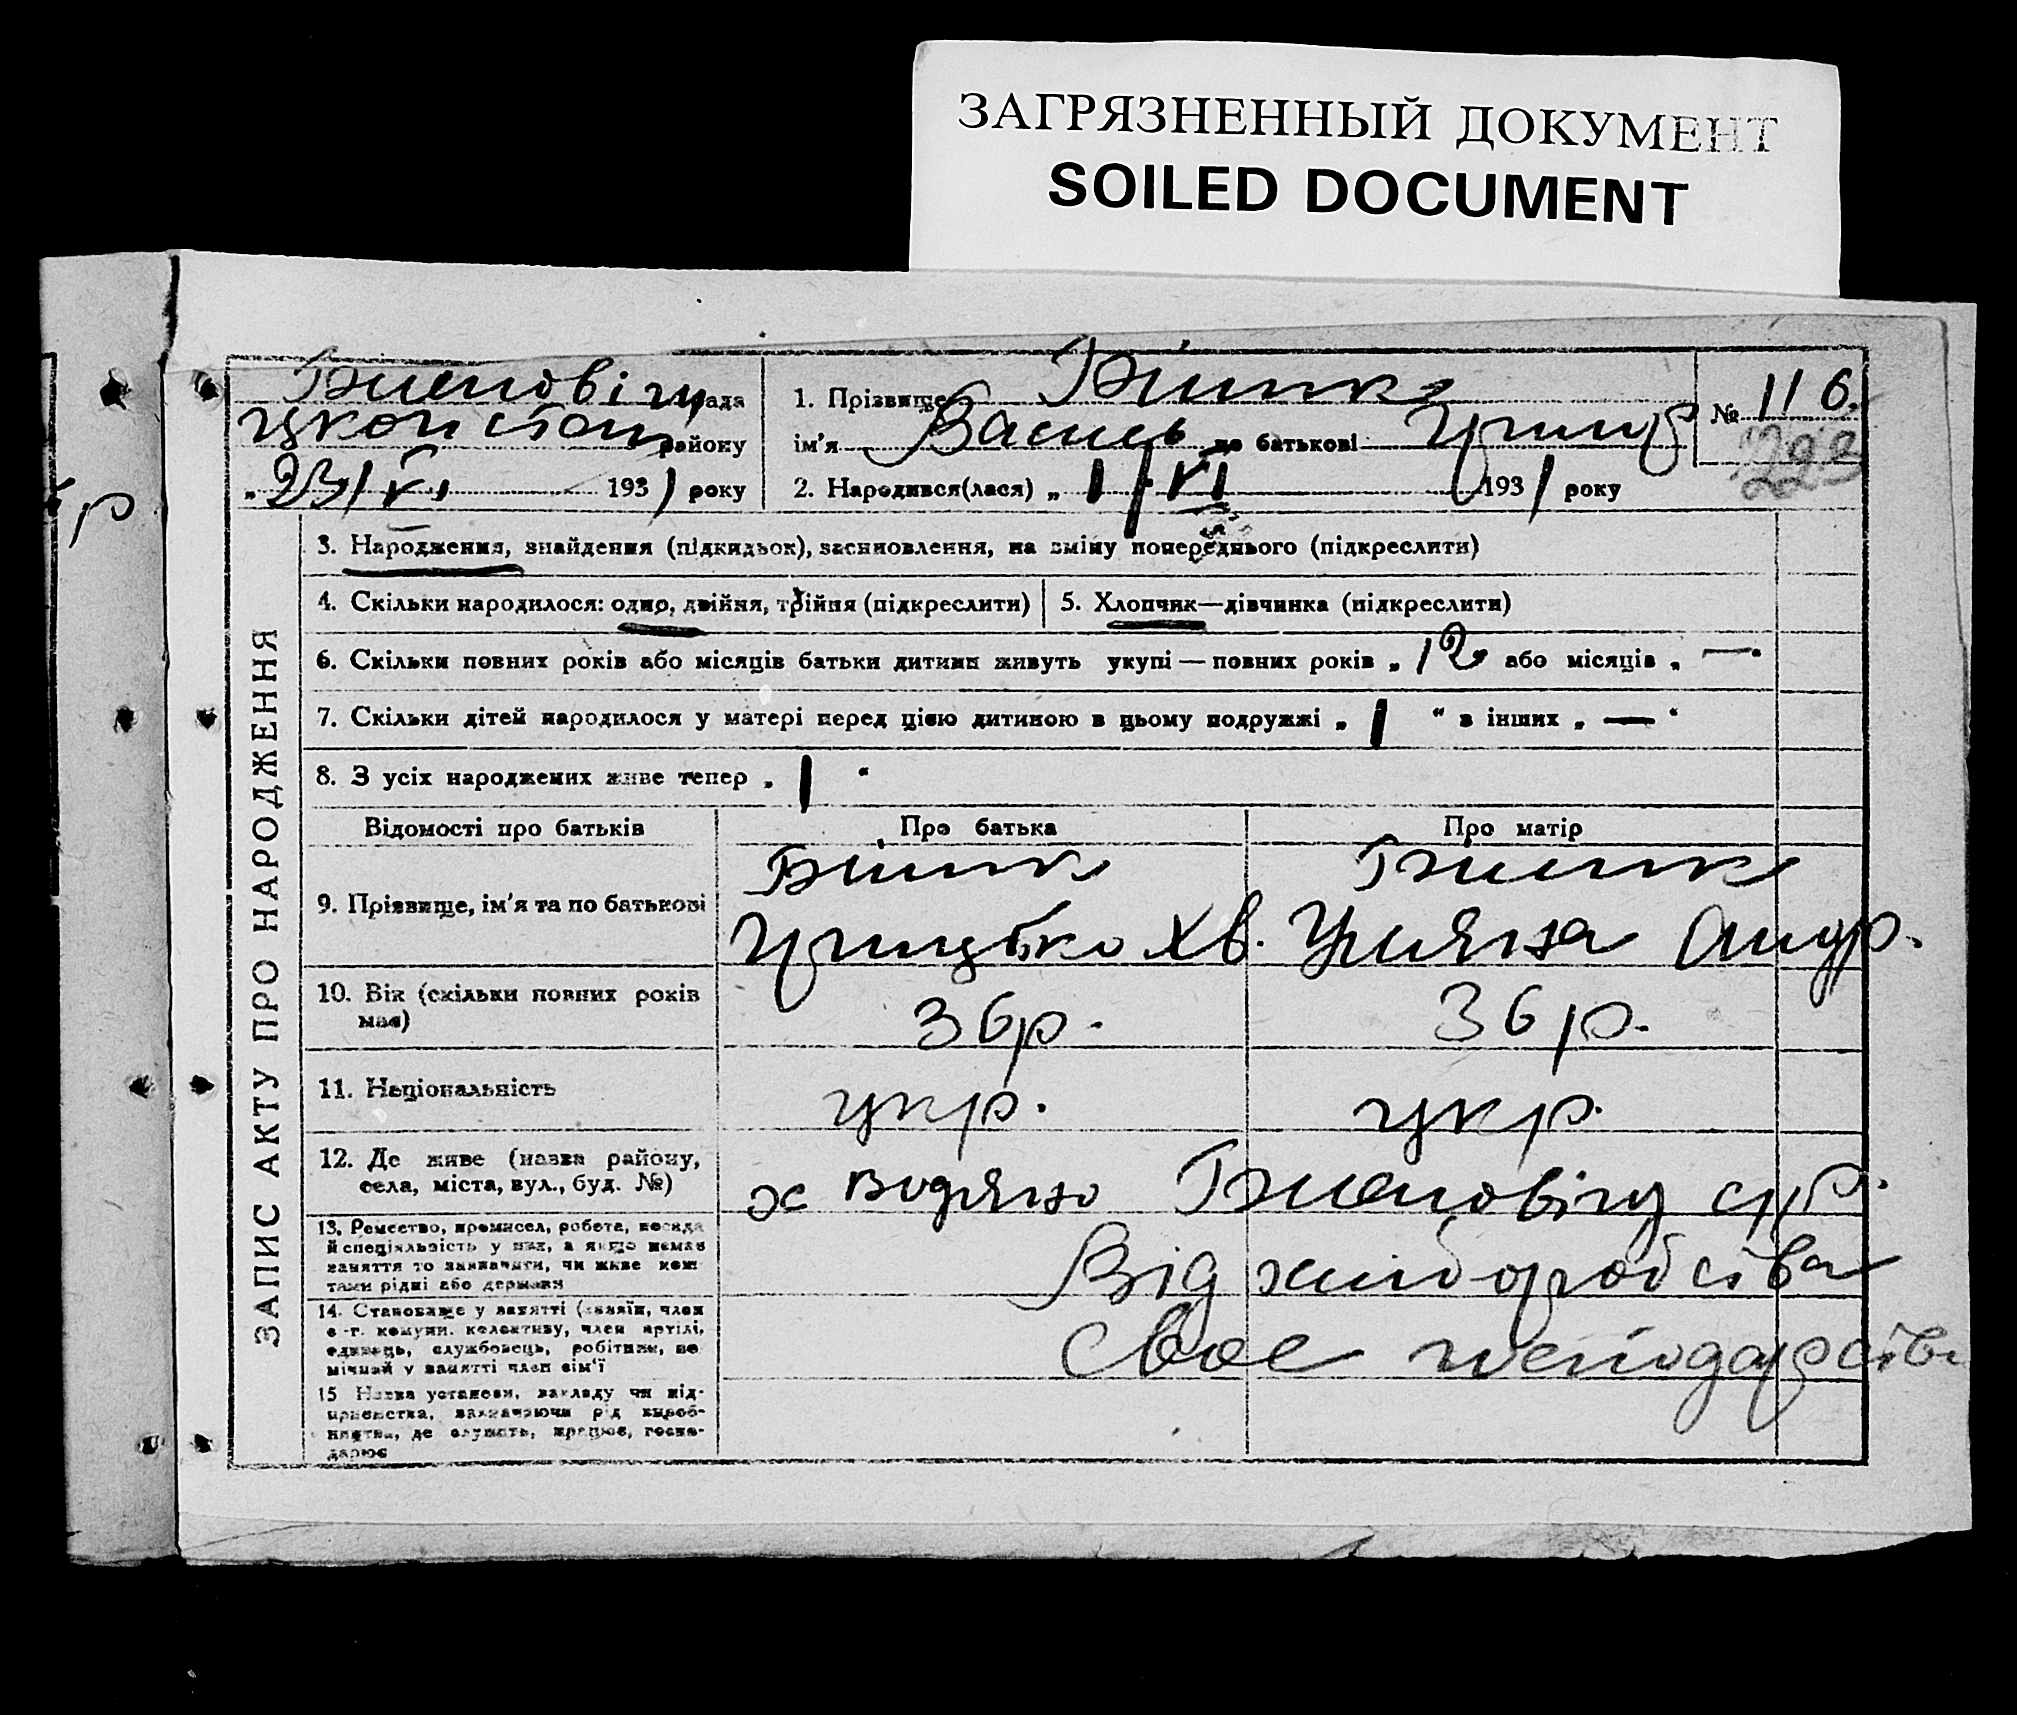 ЗАГРЯЗНЕННЫЙ ДОКУМЕНТ
SOILED DOCUMENT
рада
району
„23/VI 1931 року
1. Прізвище
ім'я Василь по батькові Гриц
2. Народився(лася) „1/VI 1931 року
№ 116.
223
ЗАПИС АКТУ ПРО НАРОДЖЕННЯ
3. Народження, знайдення (підкидьок), засиновлення, на зміну попереднього (підкреслити)
4. Скільки народилося: одно, двійня, трійня (підкреслити)
5. Хлопчик—дівчинка (підкреслити)
6. Скільки повних років або місяців батьки дитини живуть укупі — повних років „ 12 або місяців „ —"
7. Скільки дітей народилося у матері перед цією дитиною в цьому подружжі „ 1 " в інших „ — "
8. З усіх народжених живе тепер „ 1 "
Відомості про батьків
Про батька
Про матір
9. Прізвище, ім'я та по батькові
Грицько Хв.
Уляна Андр.
10. Вік (скільки повних років має)
36 р.
36 р.
11. Національність
укр.
укр.
12. Де живе (назва району,
села, міста, вул., буд. №)
х Водяно с/р.
13. Ремество, промисел, робота, посада
й спеціяльність у них, а якщо немає
заняття то зазначити, чи живе кош
тами рідні або держави
Від хліборобства
14. Становище у занятті (хазяїн, член
с.-г. комуни, колективу, член артілі,
одинець, службовець, робітник, по
мічний у занятті член сім'ї
Своє господарство
15 Назва установи, закладу чи під-
приємства, зазначаючи рід вироб-
ництва, де служить, працює, госпо-
дарює